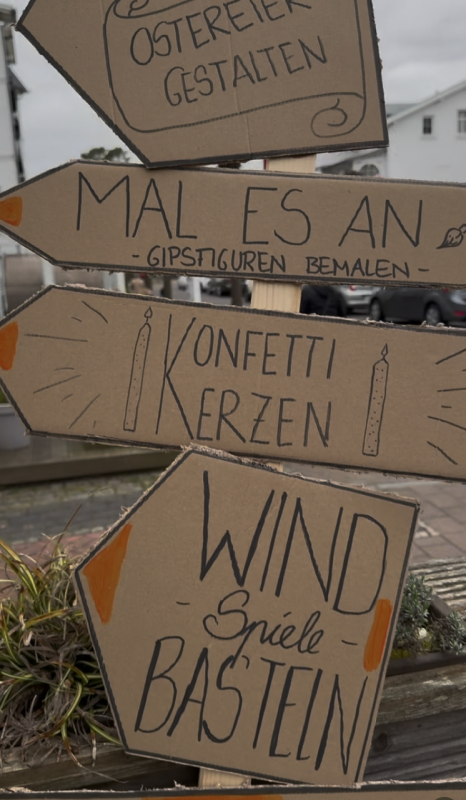 OSTEREIER
GESTALTEN
MAL ES AN
- GIPSTIGUREN BEMALEN -
KONFETTI
KERZEN
WIND
- Spiele -
BASTEIN